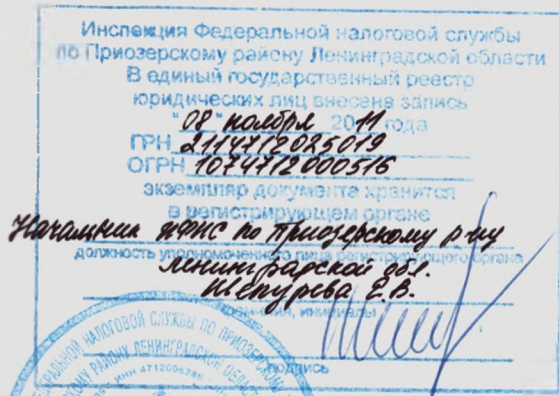 Инспекция Федеральной налоговой службы
по Приозерскому району Ленинградской области
В единый государственный реестр
юридических лиц внесена запись
"08" ноября 2011 года
ГРН 2114712025019
ОГРН 1074712000516
экземпляр документа хранится
в регистрирующем органе
Начальник ИФНС по Приозерскому р-ну
должность уполномоченного лица регистрирующего органа
Ленинградской обл.
Шепурева Е.В.
фамилия, инициалы
подпись
ФЕДЕРАЛЬНОЙ НАЛОГОВОЙ СЛУЖБЫ ПО ПРИОЗЕРСКОМУ
РАЙОНУ ЛЕНИНГРАДСКОЙ ОБЛАСТИ
ИНН